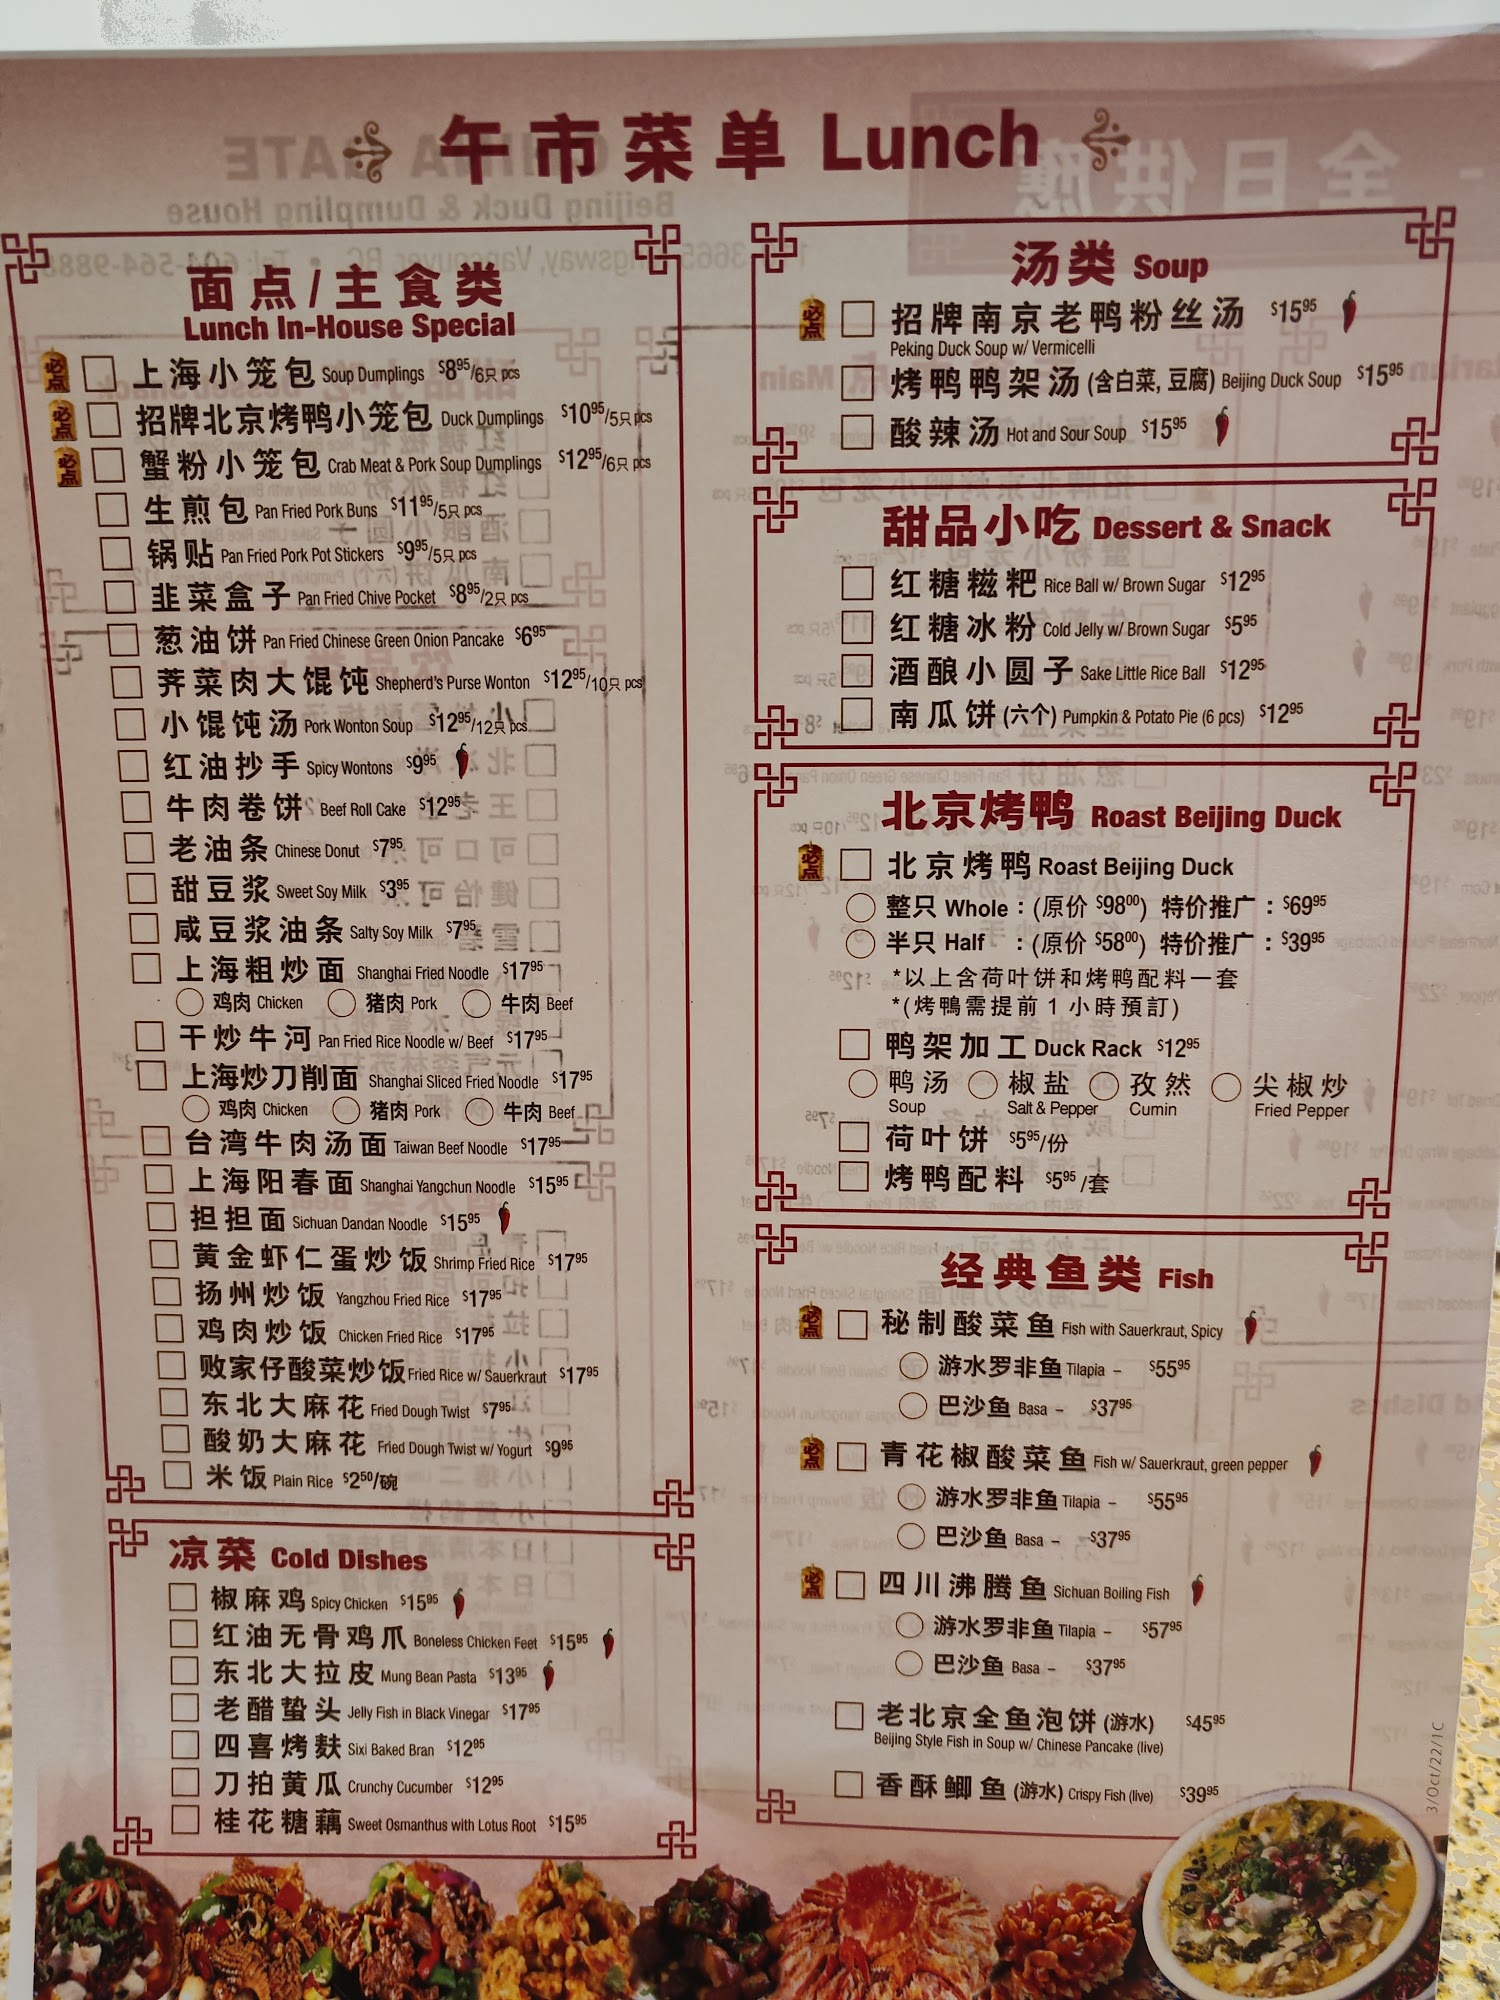 午市菜单 Lunch
面点/主食类
Lunch In-House Special
必点 上海小笼包 Soup Dumplings $8.95/6只 pcs
必点 招牌北京烤鸭小笼包 Duck Dumplings $10.95/5只 pcs
必点 蟹粉小笼包 Crab Meat & Pork Soup Dumplings $12.95/6只 pcs
生煎包 Pan Fried Pork Buns $11.95/5只 pcs
锅贴 Pan Fried Pork Pot Stickers $9.95/5只 pcs
韭菜盒子 Pan Fried Chive Pocket $8.95/2只 pcs
葱油饼 Pan Fried Chinese Green Onion Pancake $6.95
荠菜肉大馄饨 Shepherd's Purse Wonton $12.95/10只 pcs
小馄饨汤 Pork Wonton Soup $12.95/12只 pcs
红油抄手 Spicy Wontons $9.95
牛肉卷饼 Beef Roll Cake $12.95
老油条 Chinese Donut $7.95
甜豆浆 Sweet Soy Milk $3.95
咸豆浆油条 Salty Soy Milk $7.95
上海粗炒面 Shanghai Fried Noodle $17.95
鸡肉 Chicken 猪肉 Pork 牛肉 Beef
干炒牛河 Pan Fried Rice Noodle w/ Beef $17.95
上海炒刀削面 Shanghai Sliced Fried Noodle $17.95
鸡肉 Chicken 猪肉 Pork 牛肉 Beef
台湾牛肉汤面 Taiwan Beef Noodle $17.95
上海阳春面 Shanghai Yangchun Noodle $15.95
担担面 Sichuan Dandan Noodle $15.95
黄金虾仁蛋炒饭 Shrimp Fried Rice $17.95
扬州炒饭 Yangzhou Fried Rice $17.95
鸡肉炒饭 Chicken Fried Rice $17.95
败家仔酸菜炒饭 Fried Rice w/ Sauerkraut $17.95
东北大麻花 Fried Dough Twist $7.95
酸奶大麻花 Fried Dough Twist w/ Yogurt $9.95
米饭 Plain Rice $2.50/碗
凉菜 Cold Dishes
椒麻鸡 Spicy Chicken $15.95
红油无骨鸡爪 Boneless Chicken Feet $15.95
东北大拉皮 Mung Bean Pasta $13.95
老醋蛰头 Jelly Fish in Black Vinegar $17.95
四喜烤麸 Sixi Baked Bran $12.95
刀拍黄瓜 Crunchy Cucumber $12.95
桂花糖藕 Sweet Osmanthus with Lotus Root $15.95
汤类 Soup
必点 招牌南京老鸭粉丝汤 $15.95
Peking Duck Soup w/ Vermicelli
烤鸭鸭架汤 (含白菜, 豆腐) Beijing Duck Soup $15.95
酸辣汤 Hot and Sour Soup $15.95
甜品小吃 Dessert & Snack
红糖糍粑 Rice Ball w/ Brown Sugar $12.95
红糖冰粉 Cold Jelly w/ Brown Sugar $5.95
酒酿小圆子 Sake Little Rice Ball $12.95
南瓜饼 (六个) Pumpkin & Potato Pie (6 pcs) $12.95
北京烤鸭 Roast Beijing Duck
必点 北京烤鸭 Roast Beijing Duck
整只 Whole : (原价 $98.00) 特价推广 : $69.95
半只 Half : (原价 $58.00) 特价推广 : $39.95
*以上含荷叶饼和烤鸭配料一套
*(烤鴨需提前1小時預訂)
鸭架加工 Duck Rack $12.95
鸭汤 椒盐 孜然 尖椒炒
Soup Salt & Pepper Cumin Fried Pepper
荷叶饼 $5.95/份
烤鸭配料 $5.95/套
经典鱼类 Fish
必点 秘制酸菜鱼 Fish with Sauerkraut, Spicy
游水罗非鱼 Tilapia – $55.95
巴沙鱼 Basa – $37.95
必点 青花椒酸菜鱼 Fish w/ Sauerkraut, green pepper
游水罗非鱼 Tilapia – $55.95
巴沙鱼 Basa – $37.95
必点 四川沸腾鱼 Sichuan Boiling Fish
游水罗非鱼 Tilapia – $57.95
巴沙鱼 Basa – $37.95
老北京全鱼泡饼 (游水) $45.95
Beijing Style Fish in Soup w/ Chinese Pancake (live)
香酥鲫鱼 (游水) Crispy Fish (live) $39.95
3/Oct/22/1C